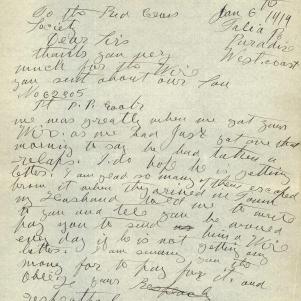 To the Red Cross Jan 6th 1919
Society Talia
Dear Sirs Paradise
thanks you very Westcoast
much for the Wire
you sent about our Son
No 62805
Pt P. P.
we was greatly when we got your
Wire. as we had Just got one that
morning to say he had taken a
relaps. I do hope he is getting
better. I am glad so many of them escaped
from it when they arived in Town
my Husband told me to write
to you and tell you he would
pay you to send a Wire
every day if he is not getting any
better. I am sending you the
money for to pay for it. and
Oblige yours
Respectful